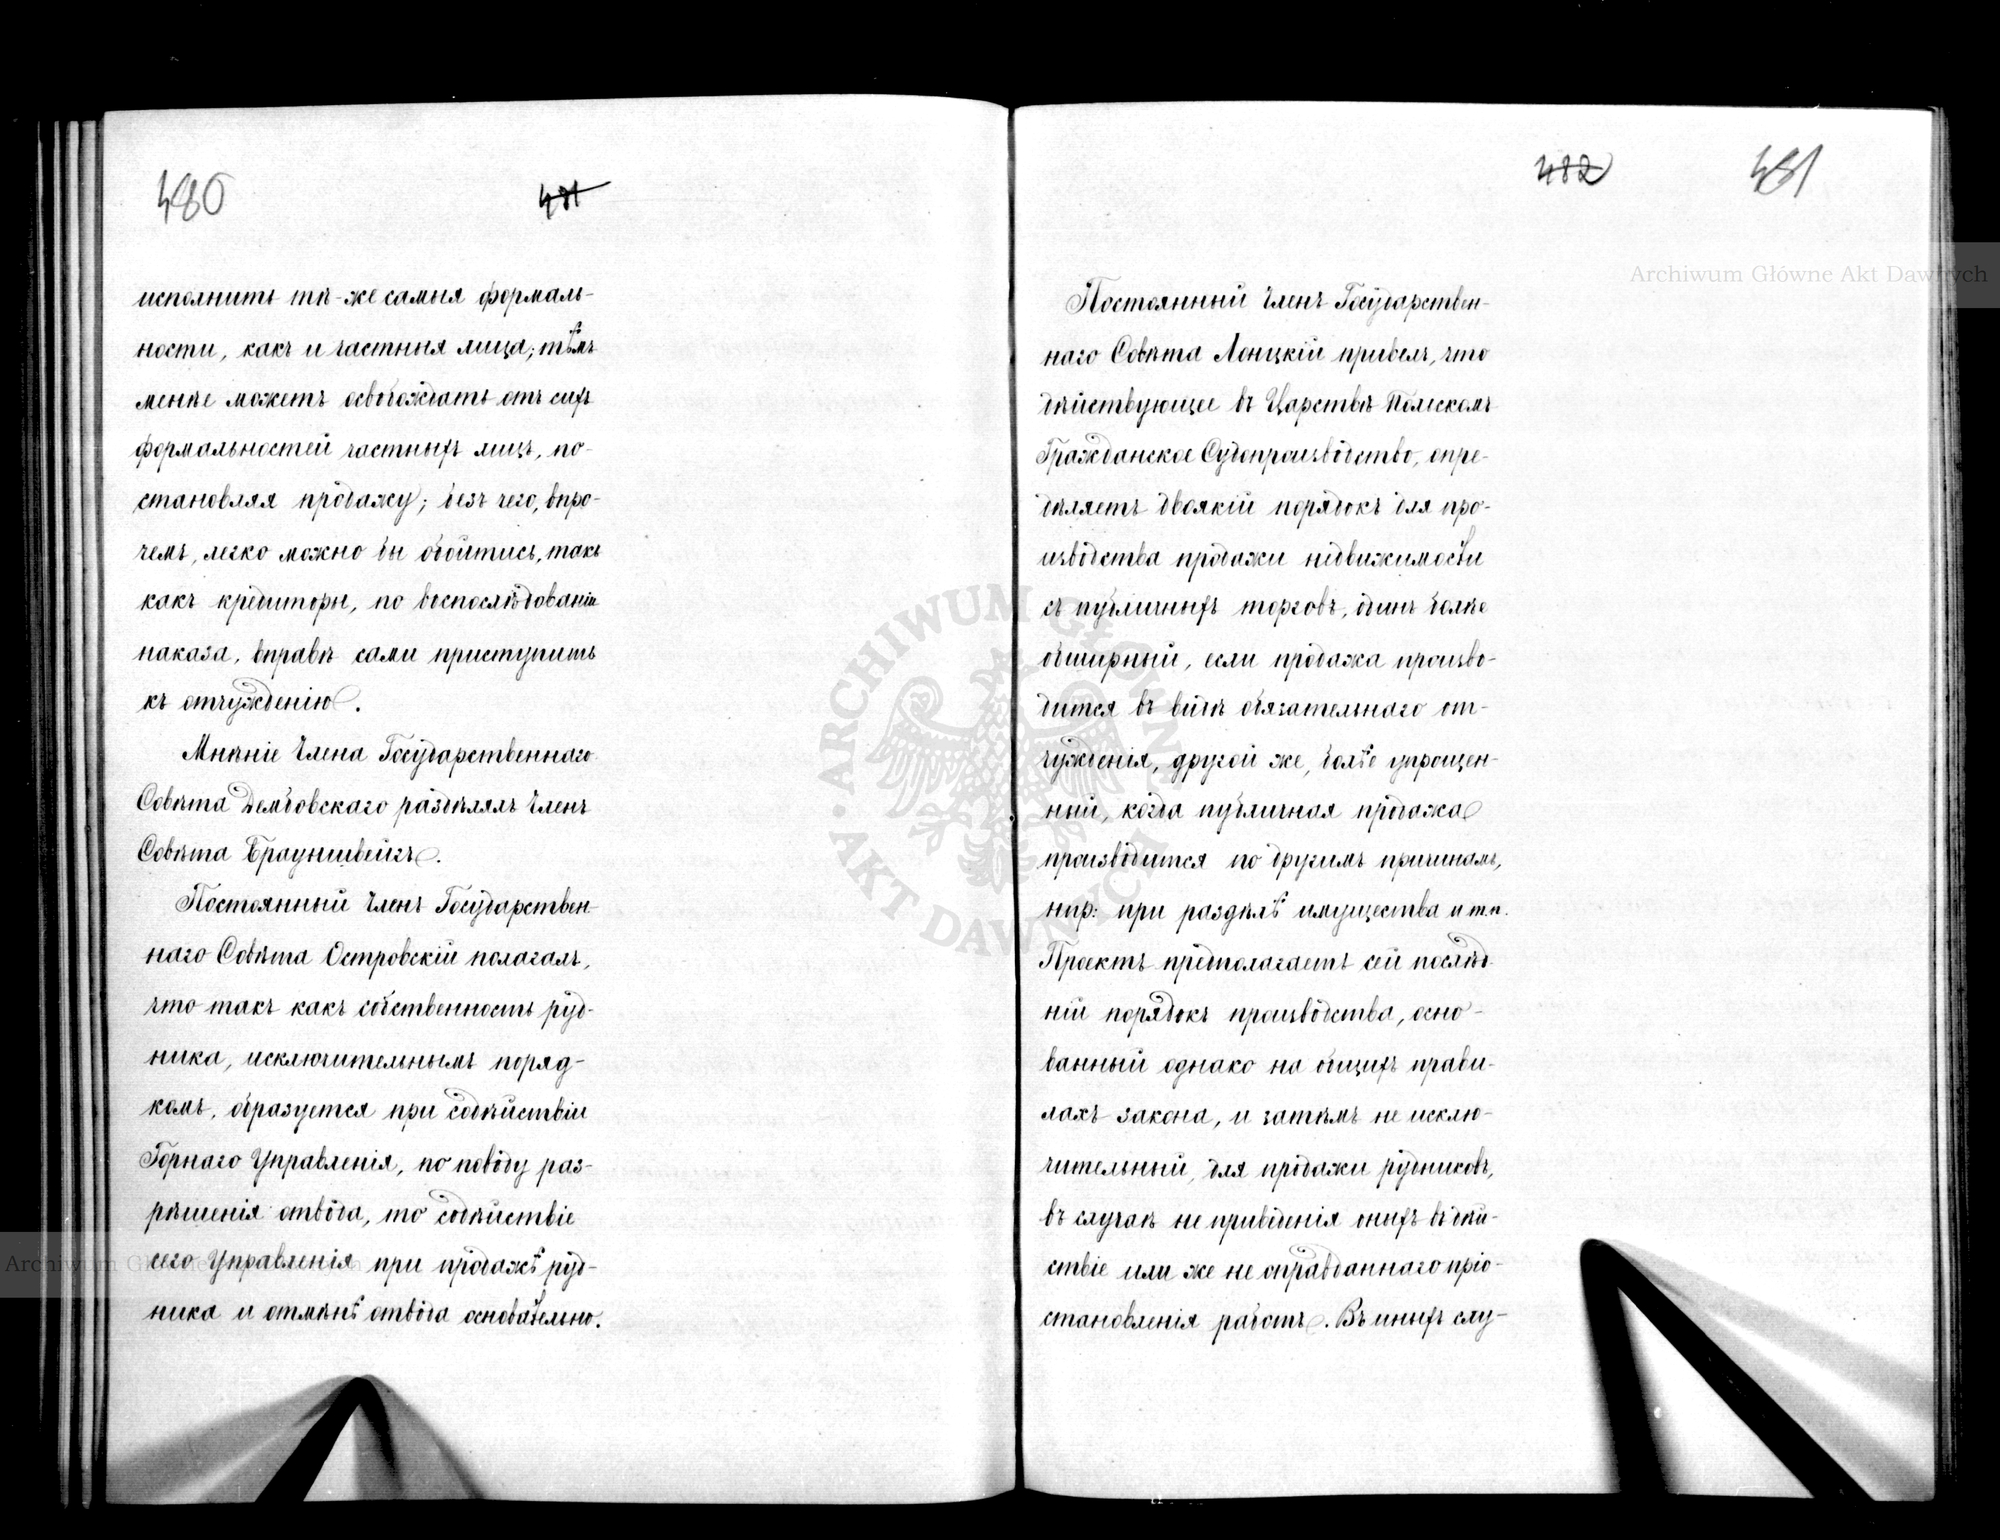 480
481
исполнить тѣ-же самыя формаль-
ности, какъ и частныя лица; тѣмъ
менѣе можетъ освобождать отъ сихъ
формальностей частныхъ лицъ, по-
становляя продажу; безъ чего, впро-
чемъ, легко можно бы обойтись, такъ
какъ кредиторы, по воспослѣдованіи
наказа, вправѣ сами приступить
къ отчужденію.
Мнѣніе Члена Государственнаго
Совѣта Дембовскаго раздѣлялъ Членъ
Совѣта Брауншвейгъ.
Постоянный Членъ Государствен-
наго Совѣта Островскій полагалъ,
что такъ какъ собственность руд-
ника, исключительнымъ поряд-
комъ, образуется при содѣйствіи
Горнаго Управленія, по поводу раз-
рѣшенія отвода, то содѣйствіе
сего Управленія при продажѣ руд-
ника и отмѣнѣ отвода основательно.
482
481
Постоянный Членъ Государствен-
наго Совѣта Лонцкій привелъ, что
дѣйствующее въ Царствѣ Польскомъ
Гражданское Судопроизводство, опре-
дѣляетъ двоякій порядокъ для про-
изводства продажи недвижимости
съ публичныхъ торговъ, одинъ болѣе
обширный, если продажа произво-
дится въ видѣ обязательнаго от-
чужденія, другой же, болѣе упрощен-
ный, когда публичная продажа
производится по другимъ причинамъ,
нпр: при раздѣлѣ имущества и т.п.
Проектъ предполагаетъ сей послѣд-
ній порядокъ производства, осно-
ванный однако на общихъ прави-
лахъ закона, и затѣмъ не исклю-
чительный, для продажи рудниковъ,
въ случаѣ не приведенія оныхъ въ дѣй-
ствіе или же не оправданнаго пріо-
становленія работъ. Въ иныхъ слу-
Archiwum Główne Akt Dawnych
ARCHIWUM GŁÓWNE AKT DAWNYCH